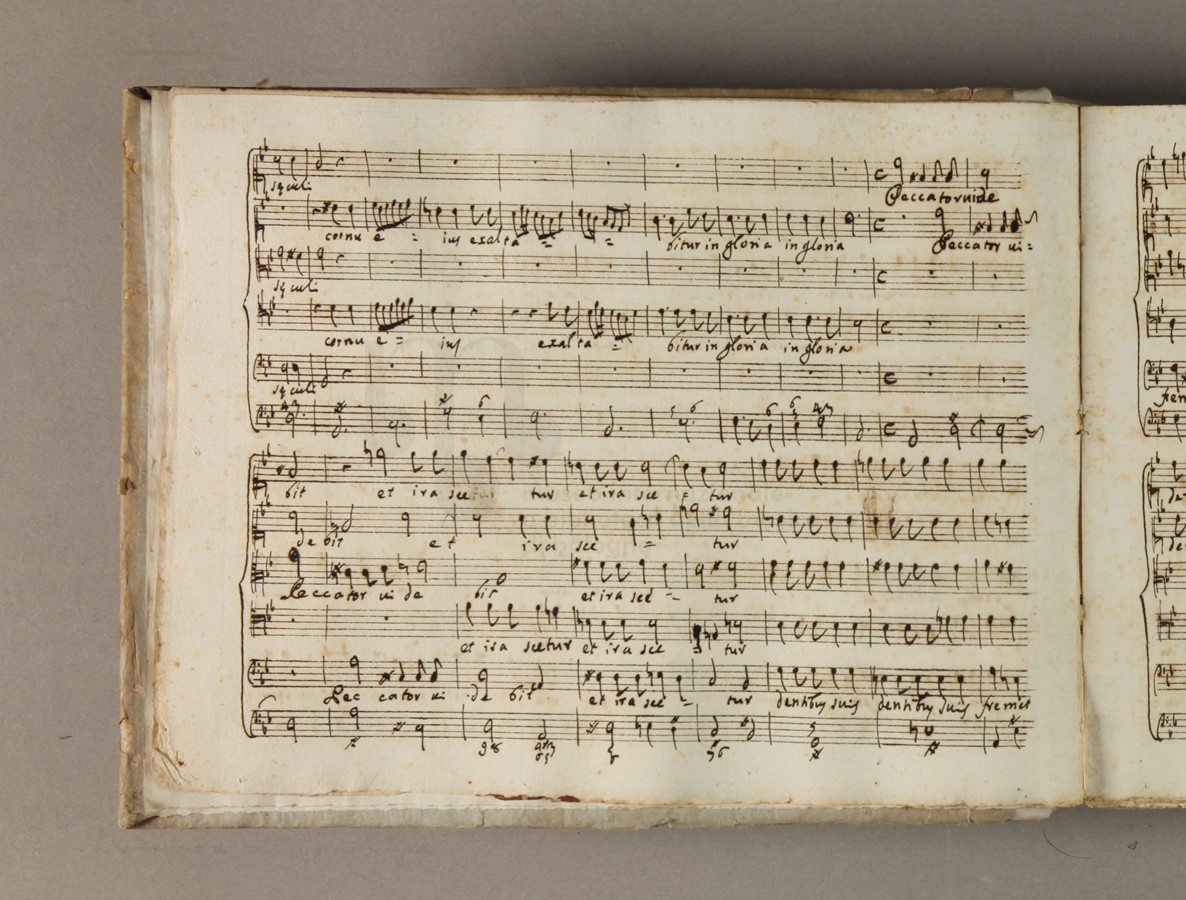 sęculi
Peccator vide
cornu e = ius exalta = = bitur in gloria in gloria Peccator vi=
sęculi
cornu e = ius exalta = bitur in gloria in gloria
sęculi
bit et ira scetur tur et ira sce = tur
de bit et ira sce = tur
Peccator vi de bit et ira sce = tur
et ira scetur et ira sce = tur
Pec cator vi de bit et ira sce = tur dentibus suis dentibus suis fremet